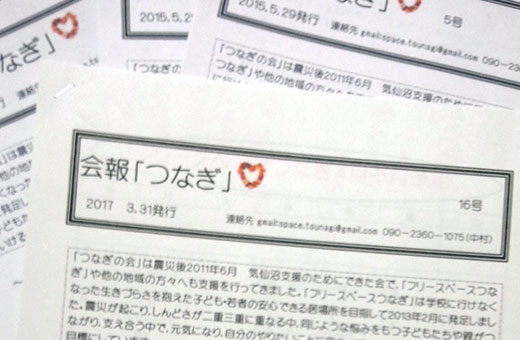 2015.5.2
なぎ」
連絡
「つなぎの会」は震
つなぎ」や他の地
2015.5.29発行
5号
連絡先 gmail:space.tsunagi@gmail.com 090-23
「つなぎの会」は震災後2011年6月 気仙沼支援のために
つなぎ」や他の地域の方々へも
会報「つなぎ」
16号
2017 3.31発行
連絡先 gmail:space.tsunagi@gmail.com 090-2360-1075(中村)
「つなぎの会」は震災後2011年6月 気仙沼支援のためにできた会で、「フリースペースつな
ぎ」や他の地域の方々へも支援を行ってきました。「フリースペースつなぎ」は学校に行けなく
なった生きづらさを抱えた子ども・若者の安心できる居場所を目指して2013年2月に発足しまし
た。震災が起こり、しんどさが二重三重に重なる中、同じような悩みをもつ子どもたちや親がつ
ながり、支え合う中で、元気になり、自分のやりたいことに
目標にしています。